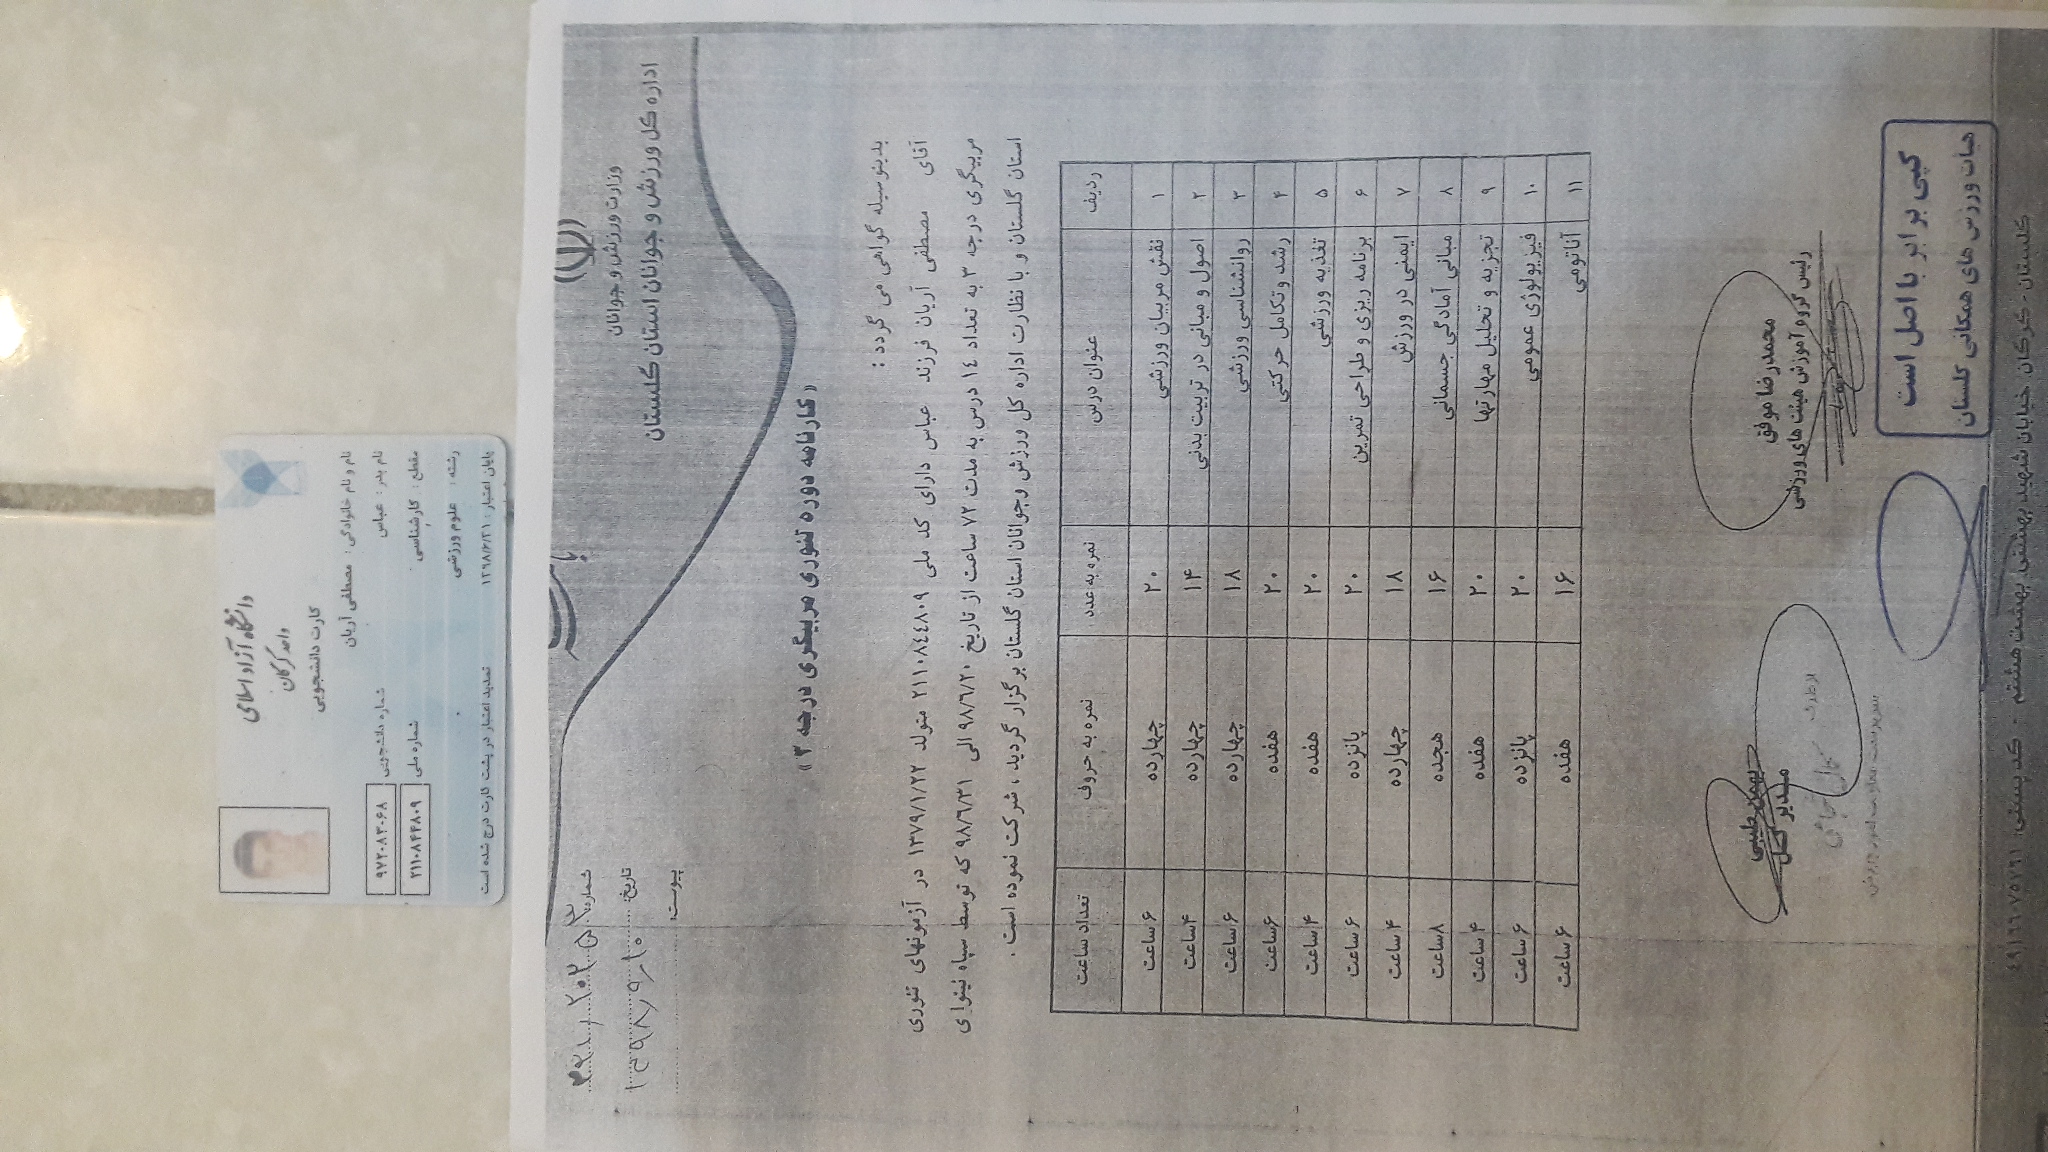 دانشگاه آزاد اسلامی
واحد گرگان
کارت دانشجویی
نام و نام خانوادگی : مصطفی آریان
نام پدر : عباس
شماره دانشجویی ۹۷۲۰۸۳۰۶۸
مقطع : کارشناسی
شماره ملی ۲۱۱۰۸۴۴۸۰۹
رشته : علوم ورزشی
پایان اعتبار : ۱۳۹۸/۶/۳۱
تمدید اعتبار در پشت کارت درج شده است
وزارت ورزش و جوانان
اداره کل ورزش و جوانان استان گلستان
شماره
تاریخ ۱۳۹۸/۹/۱۰
پیوست
«کارنامه دوره تئوری مربیگری درجه ۳»
بدینوسیله گواهی می گردد :
آقای مصطفی آریان فرزند عباس دارای کد ملی ۲۱۱۰۸٤٤۸۰۹ متولد ۱۳۷۹/۱/۲۲ در آزمونهای تئوری
مربیگری درجه ۳ به تعداد ۱٤ درس به مدت ۷۲ ساعت از تاریخ ۹۸/٦/۲۰ الی ۹۸/٦/۳۱ که توسط سپاه نینوا ی
استان گلستان و با نظارت اداره کل ورزش وجوانان استان گلستان برگزار گردید ، شرکت نموده است .
ردیف عنوان درس نمره به عدد نمره به حروف تعداد ساعت
۱ نقش مربیان ورزشی ۲۰ چهارده ۶ ساعت
۲ اصول و مبانی در تربیت بدنی ۱۴ چهارده ۴ ساعت
۳ روانشناسی ورزشی ۱۸ چهارده ۶ ساعت
۴ رشد و تکامل حرکتی ۲۰ هفده ۶ ساعت
۵ تغذیه ورزشی ۲۰ هفده ۴ ساعت
۶ برنامه ریزی و طراحی تمرین ۲۰ پانزده ۶ ساعت
۷ ایمنی در ورزش ۱۸ چهارده ۴ ساعت
۸ مبانی آمادگی جسمانی ۱۶ هجده ۸ ساعت
۹ تجزیه و تحلیل مهارتها ۲۰ هفده ۴ ساعت
۱۰ فیزیولوژی عمومی ۲۰ پانزده ۶ ساعت
۱۱ آناتومی ۱۶ هفده ۶ ساعت
محمدرضا موفق
رئیس گروه آموزش هیئت های ورزشی
بهمن طیبی
مدیر کل
کپی برابر با اصل است
هیأت ورزش های همگانی گلستان
گلستان - گرگان خیابان شهید بهشتی بهشت هشتم - کد پستی: ٤۹۱٦٦۷۵۷۹۱